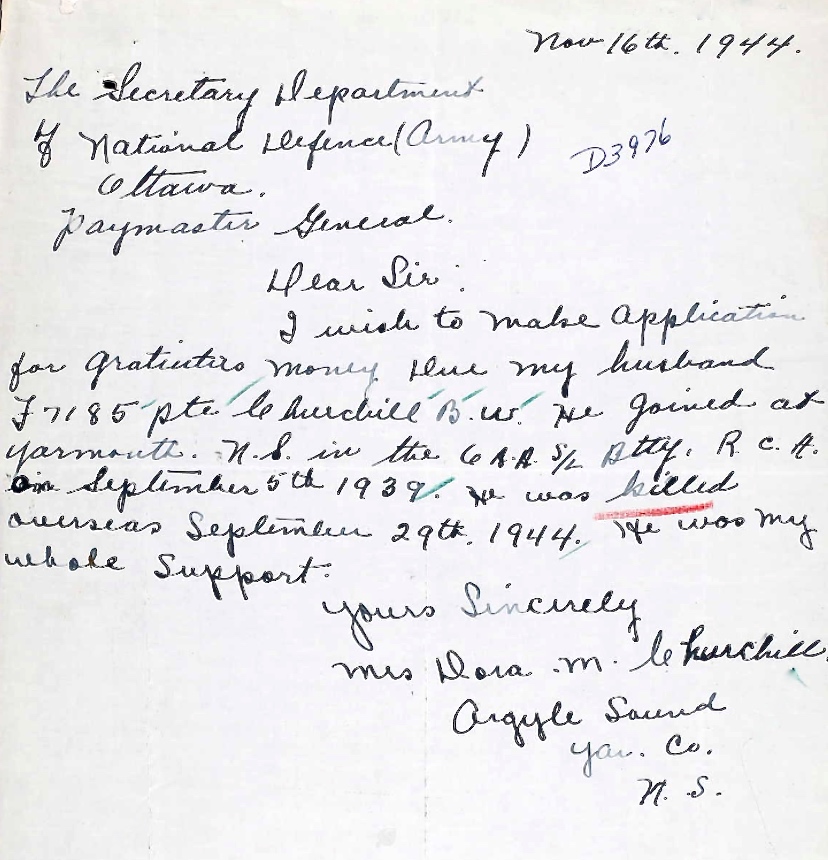 Nov 16th. 1944.
The Secretary Department
of National Defence (Army)
D3976
Ottawa.
Paymaster General.
Dear Sir:
I wish to make application
for gratiutiro money due my husband
F7185 pte Churchill B.W. He joined at
Yarmouth. N.S. in the 6 A.A. S/L Btty. R.C.A.
on September 5th 1939. He was killed
overseas September 29th. 1944. He was my
whole support.
Yours Sincirely
Mrs Dora M. Churchill.
Argyle Sound
Yar. Co.
N.S.